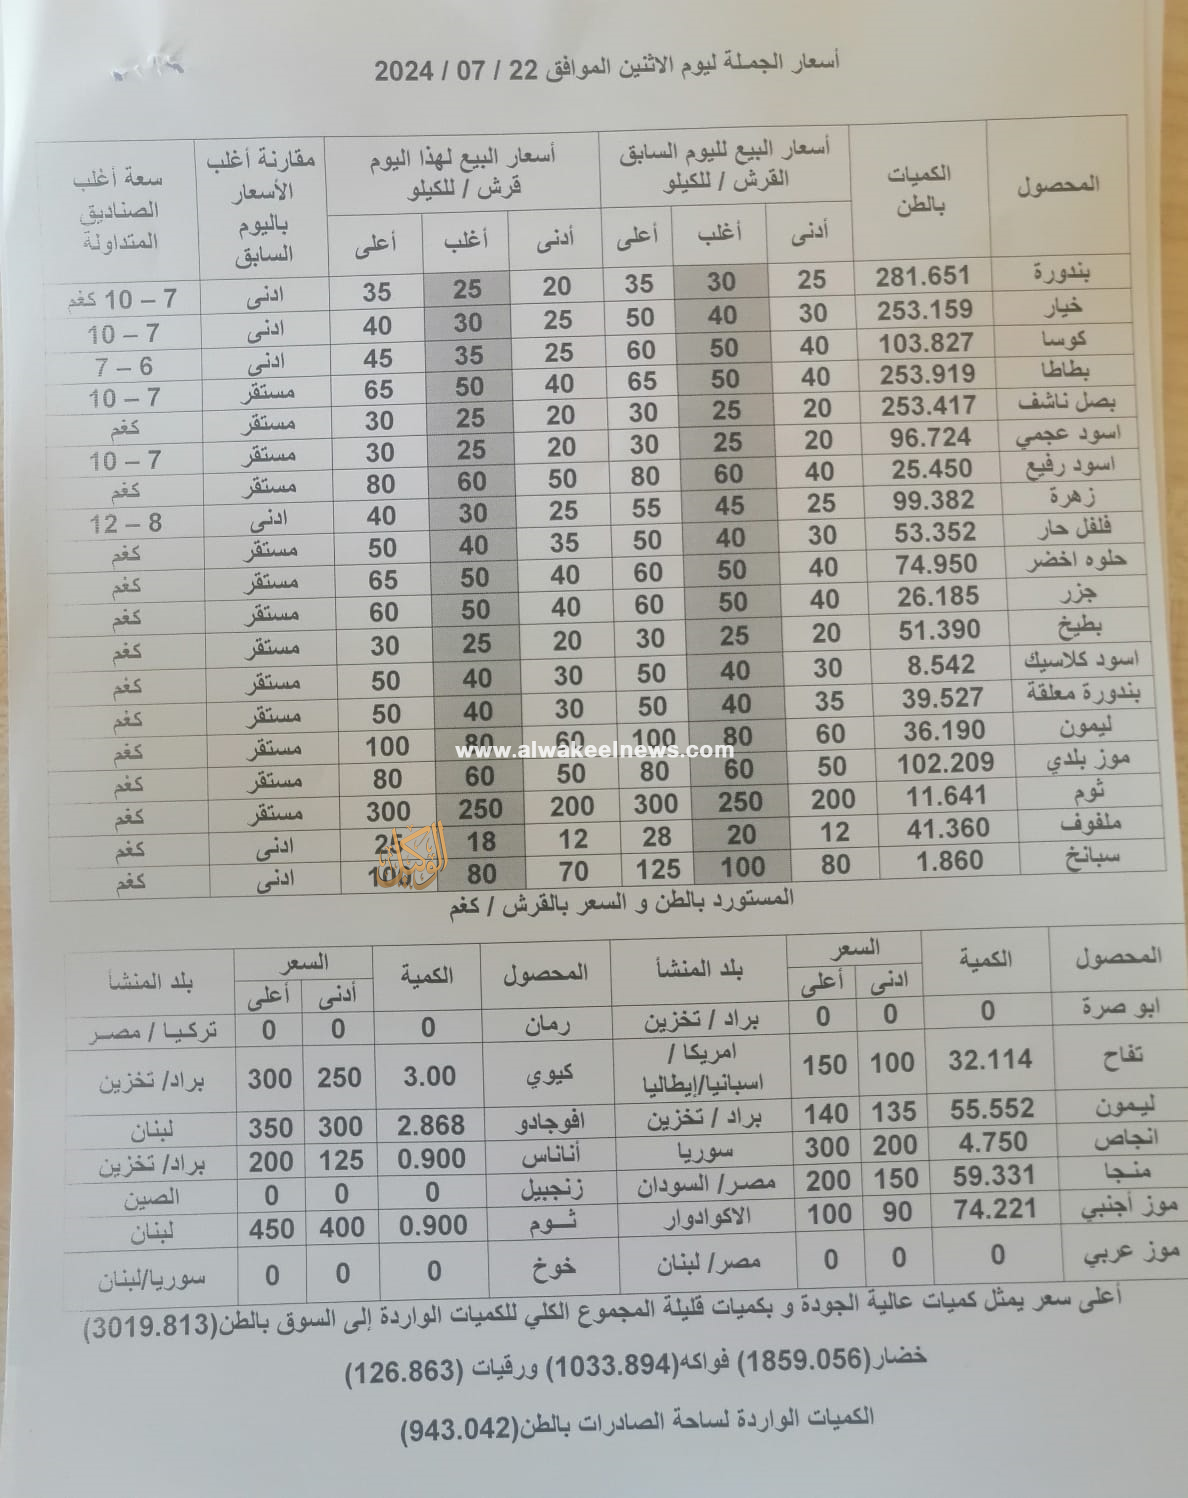 أسعار الجملة ليوم الاثنين الموافق 22 / 07 / 2024
المحصول الكميات بالطن أسعار البيع لليوم السابق القرش / للكيلو أسعار البيع لهذا اليوم قرش / للكيلو مقارنة أغلب الأسعار باليوم السابق سعة أغلب الصناديق المتداولة
أدنى أغلب أعلى أدنى أغلب أعلى
بندورة 281.651 25 30 35 20 25 35 ادنى 7 – 10 كغم
خيار 253.159 30 40 50 25 30 40 ادنى 7 – 10
كوسا 103.827 40 50 60 25 35 45 ادنى 6 – 7
بطاطا 253.919 40 50 65 40 50 65 مستقر 7 – 10
بصل ناشف 253.417 20 25 30 20 25 30 مستقر كغم
اسود عجمي 96.724 20 25 30 20 25 30 مستقر 7 – 10
اسود رفيع 25.450 40 60 80 50 60 80 مستقر كغم
زهرة 99.382 25 45 55 25 30 40 ادنى 8 – 12
فلفل حار 53.352 30 40 50 35 40 50 مستقر كغم
حلوه اخضر 74.950 40 50 60 40 50 65 مستقر كغم
جزر 26.185 40 50 60 40 50 60 مستقر كغم
بطيخ 51.390 20 25 30 20 25 30 مستقر كغم
اسود كلاسيك 8.542 30 40 50 30 40 50 مستقر كغم
بندورة معلقة 39.527 35 40 50 30 40 50 مستقر كغم
ليمون 36.190 60 80 100 60 80 100 مستقر كغم
www.alwakeelnews.com
موز بلدي 102.209 50 60 80 50 60 80 مستقر كغم
ثوم 11.641 200 250 300 200 250 300 مستقر كغم
ملفوف 41.360 12 20 28 12 18 25 ادنى كغم
سبانخ 1.860 80 100 125 70 80 100 ادنى كغم
الوكيل
المستورد بالطن و السعر بالقرش / كغم
المحصول الكمية السعر بلد المنشأ المحصول الكمية السعر بلد المنشأ
ادنى أعلى أدنى أعلى
ابو صرة 0 0 0 براد / تخزين رمان 0 0 0 تركيا / مصر
تفاح 32.114 100 150 امريكا / اسبانيا/إيطاليا كيوي 3.00 250 300 براد/ تخزين
ليمون 55.552 135 140 براد / تخزين افوجادو 2.868 300 350 لبنان
انجاص 4.750 200 300 سوريا أناناس 0.900 125 200 براد/ تخزين
منجا 59.331 150 200 مصر/ السودان زنجبيل 0 0 0 الصين
موز أجنبي 74.221 90 100 الاكوادوار ثوم 0.900 400 450 لبنان
موز عربي 0 0 0 مصر/ لبنان خوخ 0 0 0 سوريا/لبنان
أعلى سعر يمثل كميات عالية الجودة و بكميات قليلة المجموع الكلي للكميات الواردة إلى السوق بالطن(3019.813)
خضار(1859.056) فواكه(1033.894) ورقيات (126.863)
الكميات الواردة لساحة الصادرات بالطن(943.042)